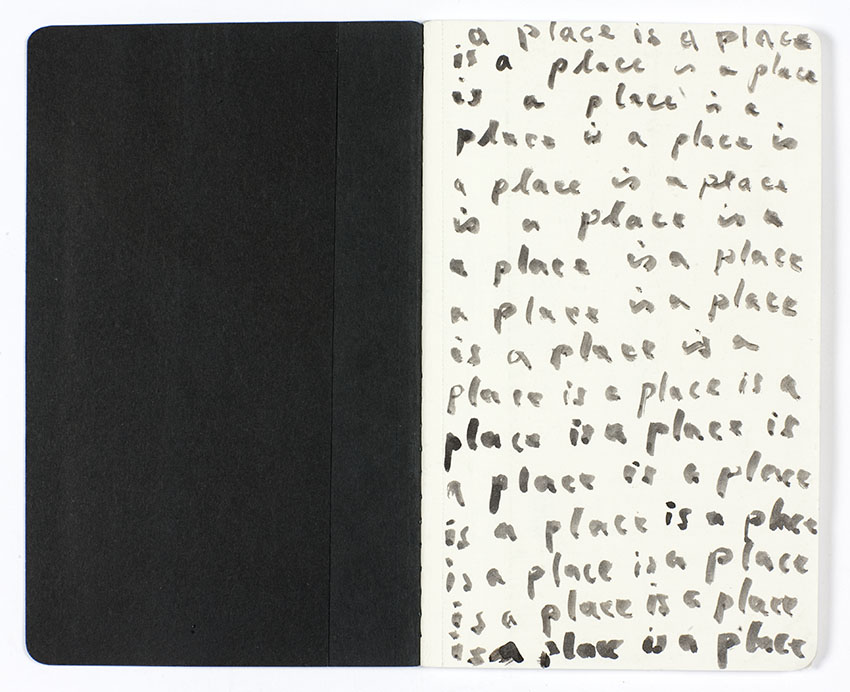 a place is a place
is a place is a place
is a place is a
place is a place is
a place is a place
is a place is a
a place is a place
a place is a place
is a place is a
place is a place is a
place is a place is
a place is a place
is a place is a place
is a place is a place
is a place is a place
is a place is a place